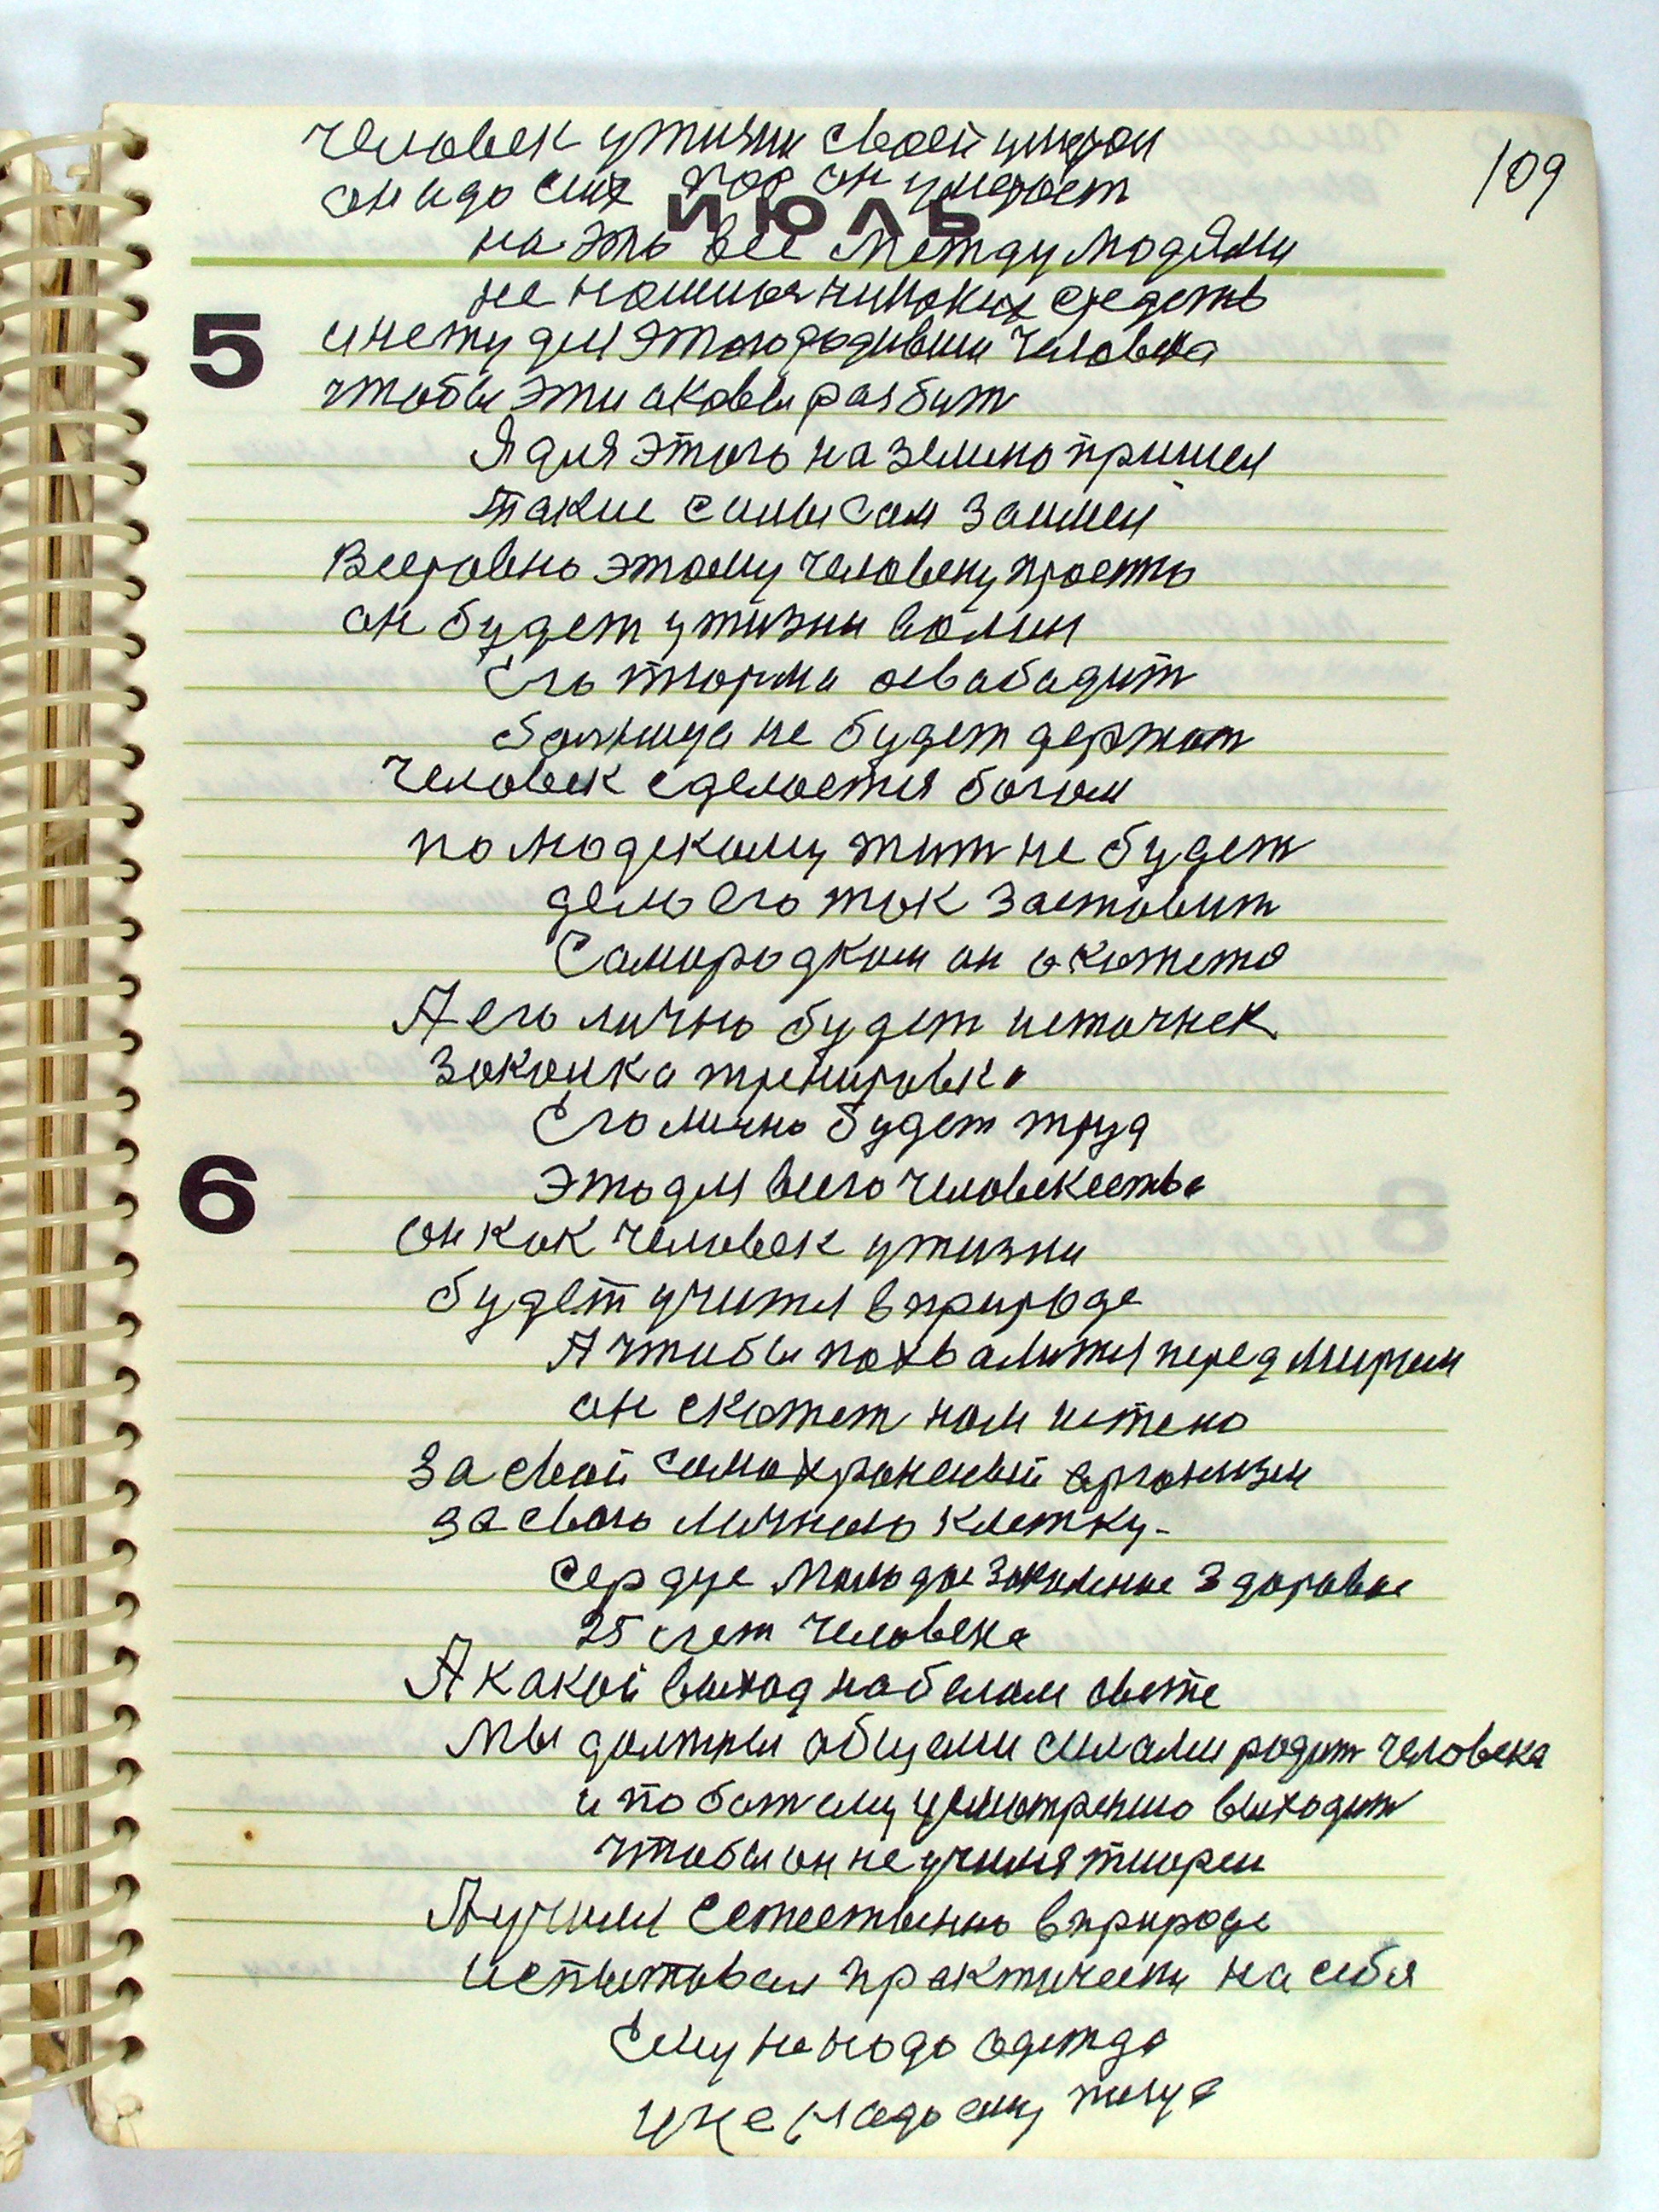 человек у жизни своей умирал
109
он и до сих пор он умирает
ИЮЛЬ
на это все между людями
не нашлося никаких средств
5
и нету для этого родивши человека
чтобы эти аковы разбит
Я для этого на землю пришел
такие силы сам заимел
Всеравно этому человеку просто
он будет у жизни волин
Его тюрма освабадит
болница не будет держат
Человек сделается богом
по людскому жит не будет
дело его так заставит
Самородком он окажется
А его лично будет источнек
закалка тренировка
Его лично будет труд
6
Это для всего человекества
он как человек у жизни
будет учится в природе
А чтобы похвалится перед миром
он скажет нам истено
За свой самохраненый организм
за свою личную клетку-
Сердце молодое закаленое здоровое
25 лет человека
А какой выход на белом свете
мы должны общеми силами родит человека
и по божему усмотрению выходит
чтобы он не учился тиории
А учился Естественно в природе
испытовал практически на себя
Ему не надо одежда
и не надо ему пища